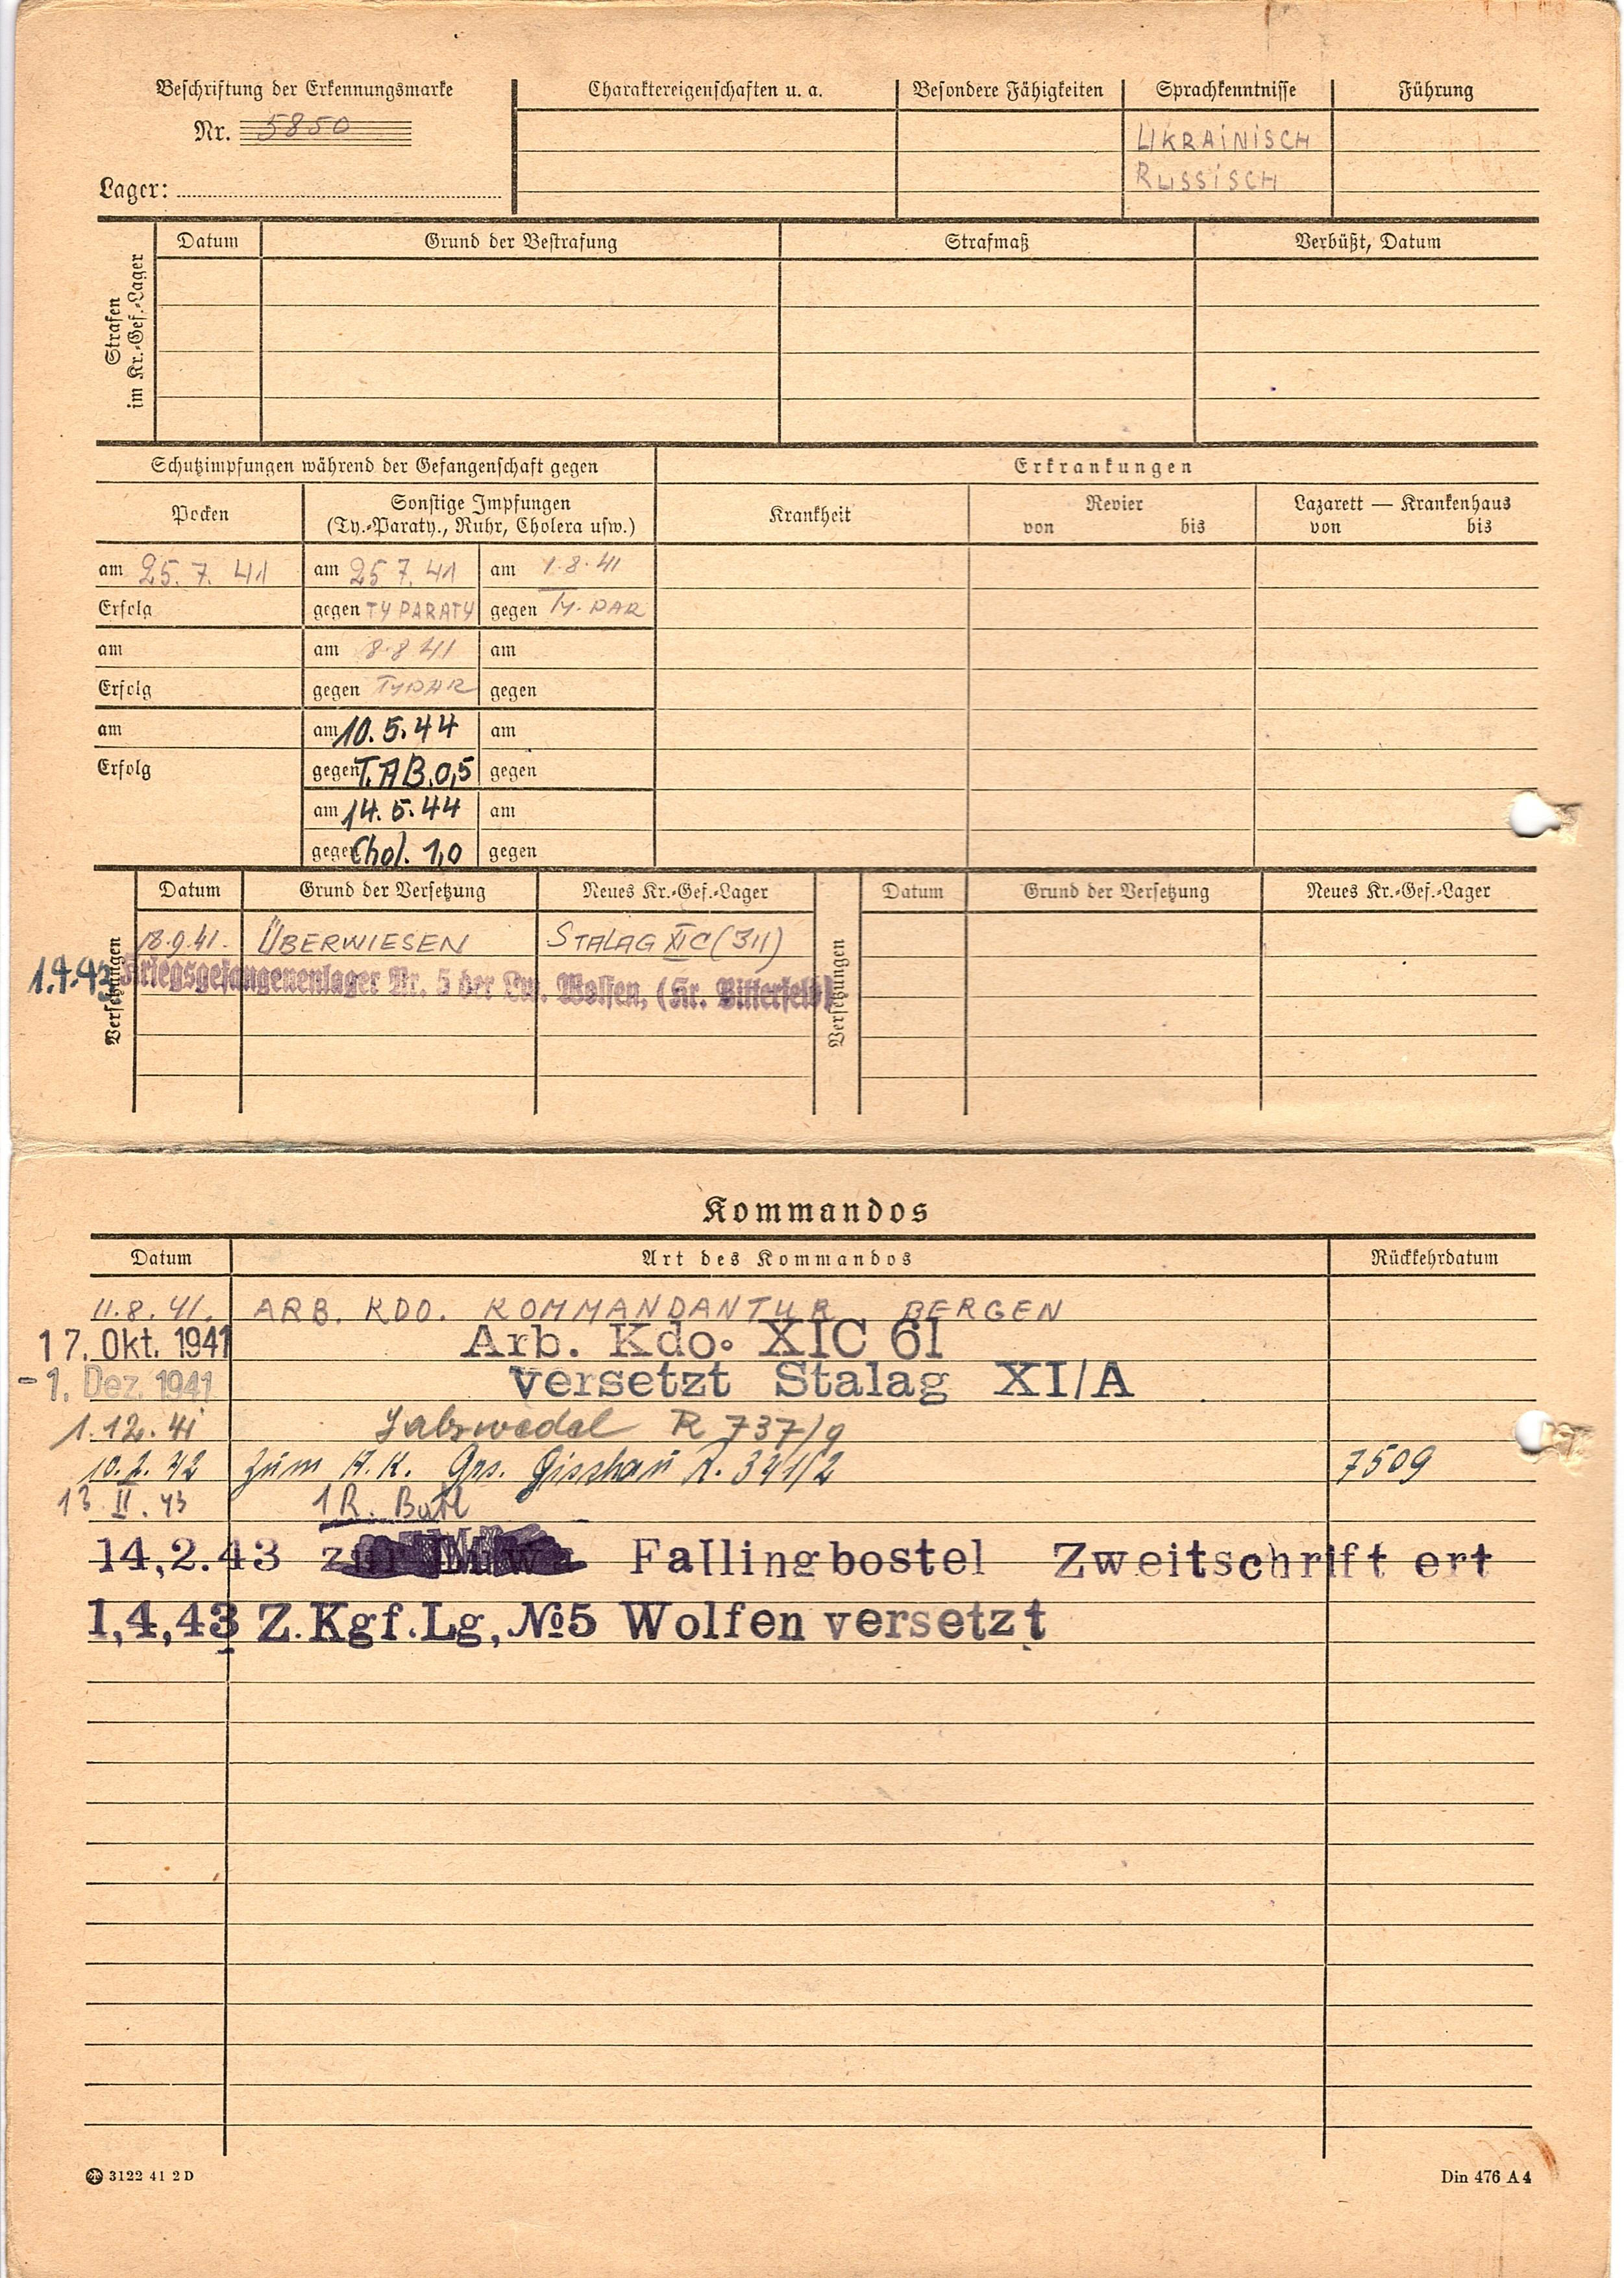 Beschriftung der Erkennungsmarke Charaktereigenschaften u. a. Besondere Fähigkeiten Sprachkenntnisse Führung
Nr. 5850 UKRAINISCH
Lager: RUSSISCH
Strafen im Kr.-Gef.-Lager
Datum Grund der Bestrafung Strafmaß Verbüßt, Datum
Schutzimpfungen während der Gefangenschaft gegen Erkrankungen
Pocken Sonstige Impfungen Krankheit Revier Lazarett — Krankenhaus
(Ty.-Paraty., Ruhr, Cholera usw.) von bis von bis
am 25. 7. 41 am 25 7. 41 am 1.8.41
Erfolg gegen TY PARATY gegen Ty. PAR
am am 8.8 41 am
Erfolg gegen TYPAR gegen
am am 10. 5. 44 am
Erfolg gegen T.AB.0,5 gegen
am 14. 5. 44 am
gegen Chol. 1,0 gegen
Versetzungen Datum Grund der Versetzung Neues Kr.-Gef.-Lager Versetzungen Datum Grund der Versetzung Neues Kr.-Gef.-Lager
18.9.41. ÜBERWIESEN STALAG XI C (311)
1.4.43 Kriegsgefangenenlager Nr. 5 der Lw. Wolfen, (Kr. Bitterfeld)
Kommandos
Datum Art des Kommandos Rückkehrdatum
11.8.41. ARB. KDO. KOMMANDANTUR BERGEN
17. Okt. 1941 Arb. Kdo. XIC 61
-1. Dez. 1941 versetzt Stalag XI/A
1.12.41 R 737/9
10.2.42 zum A.K. 341/2 7509
13 II. 43 1 R.
14,2.43 Fallingbostel Zweitschrift ert
1,4,43 Z.Kgf.Lg, №5 Wolfen versetzt
3122 41 2 D Din 476 A 4